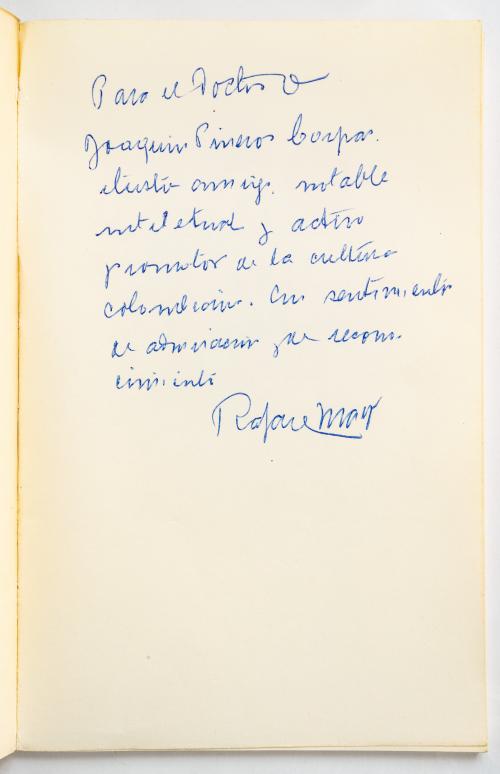 Para el Doctor
Joaquin Pineros Corpas.
ilustre amigo. notable
intelectual y activo
promotor de la cultura
colombiana. Con sentimiento
de admiracion y de recono-
cimiento
Rafael Maya